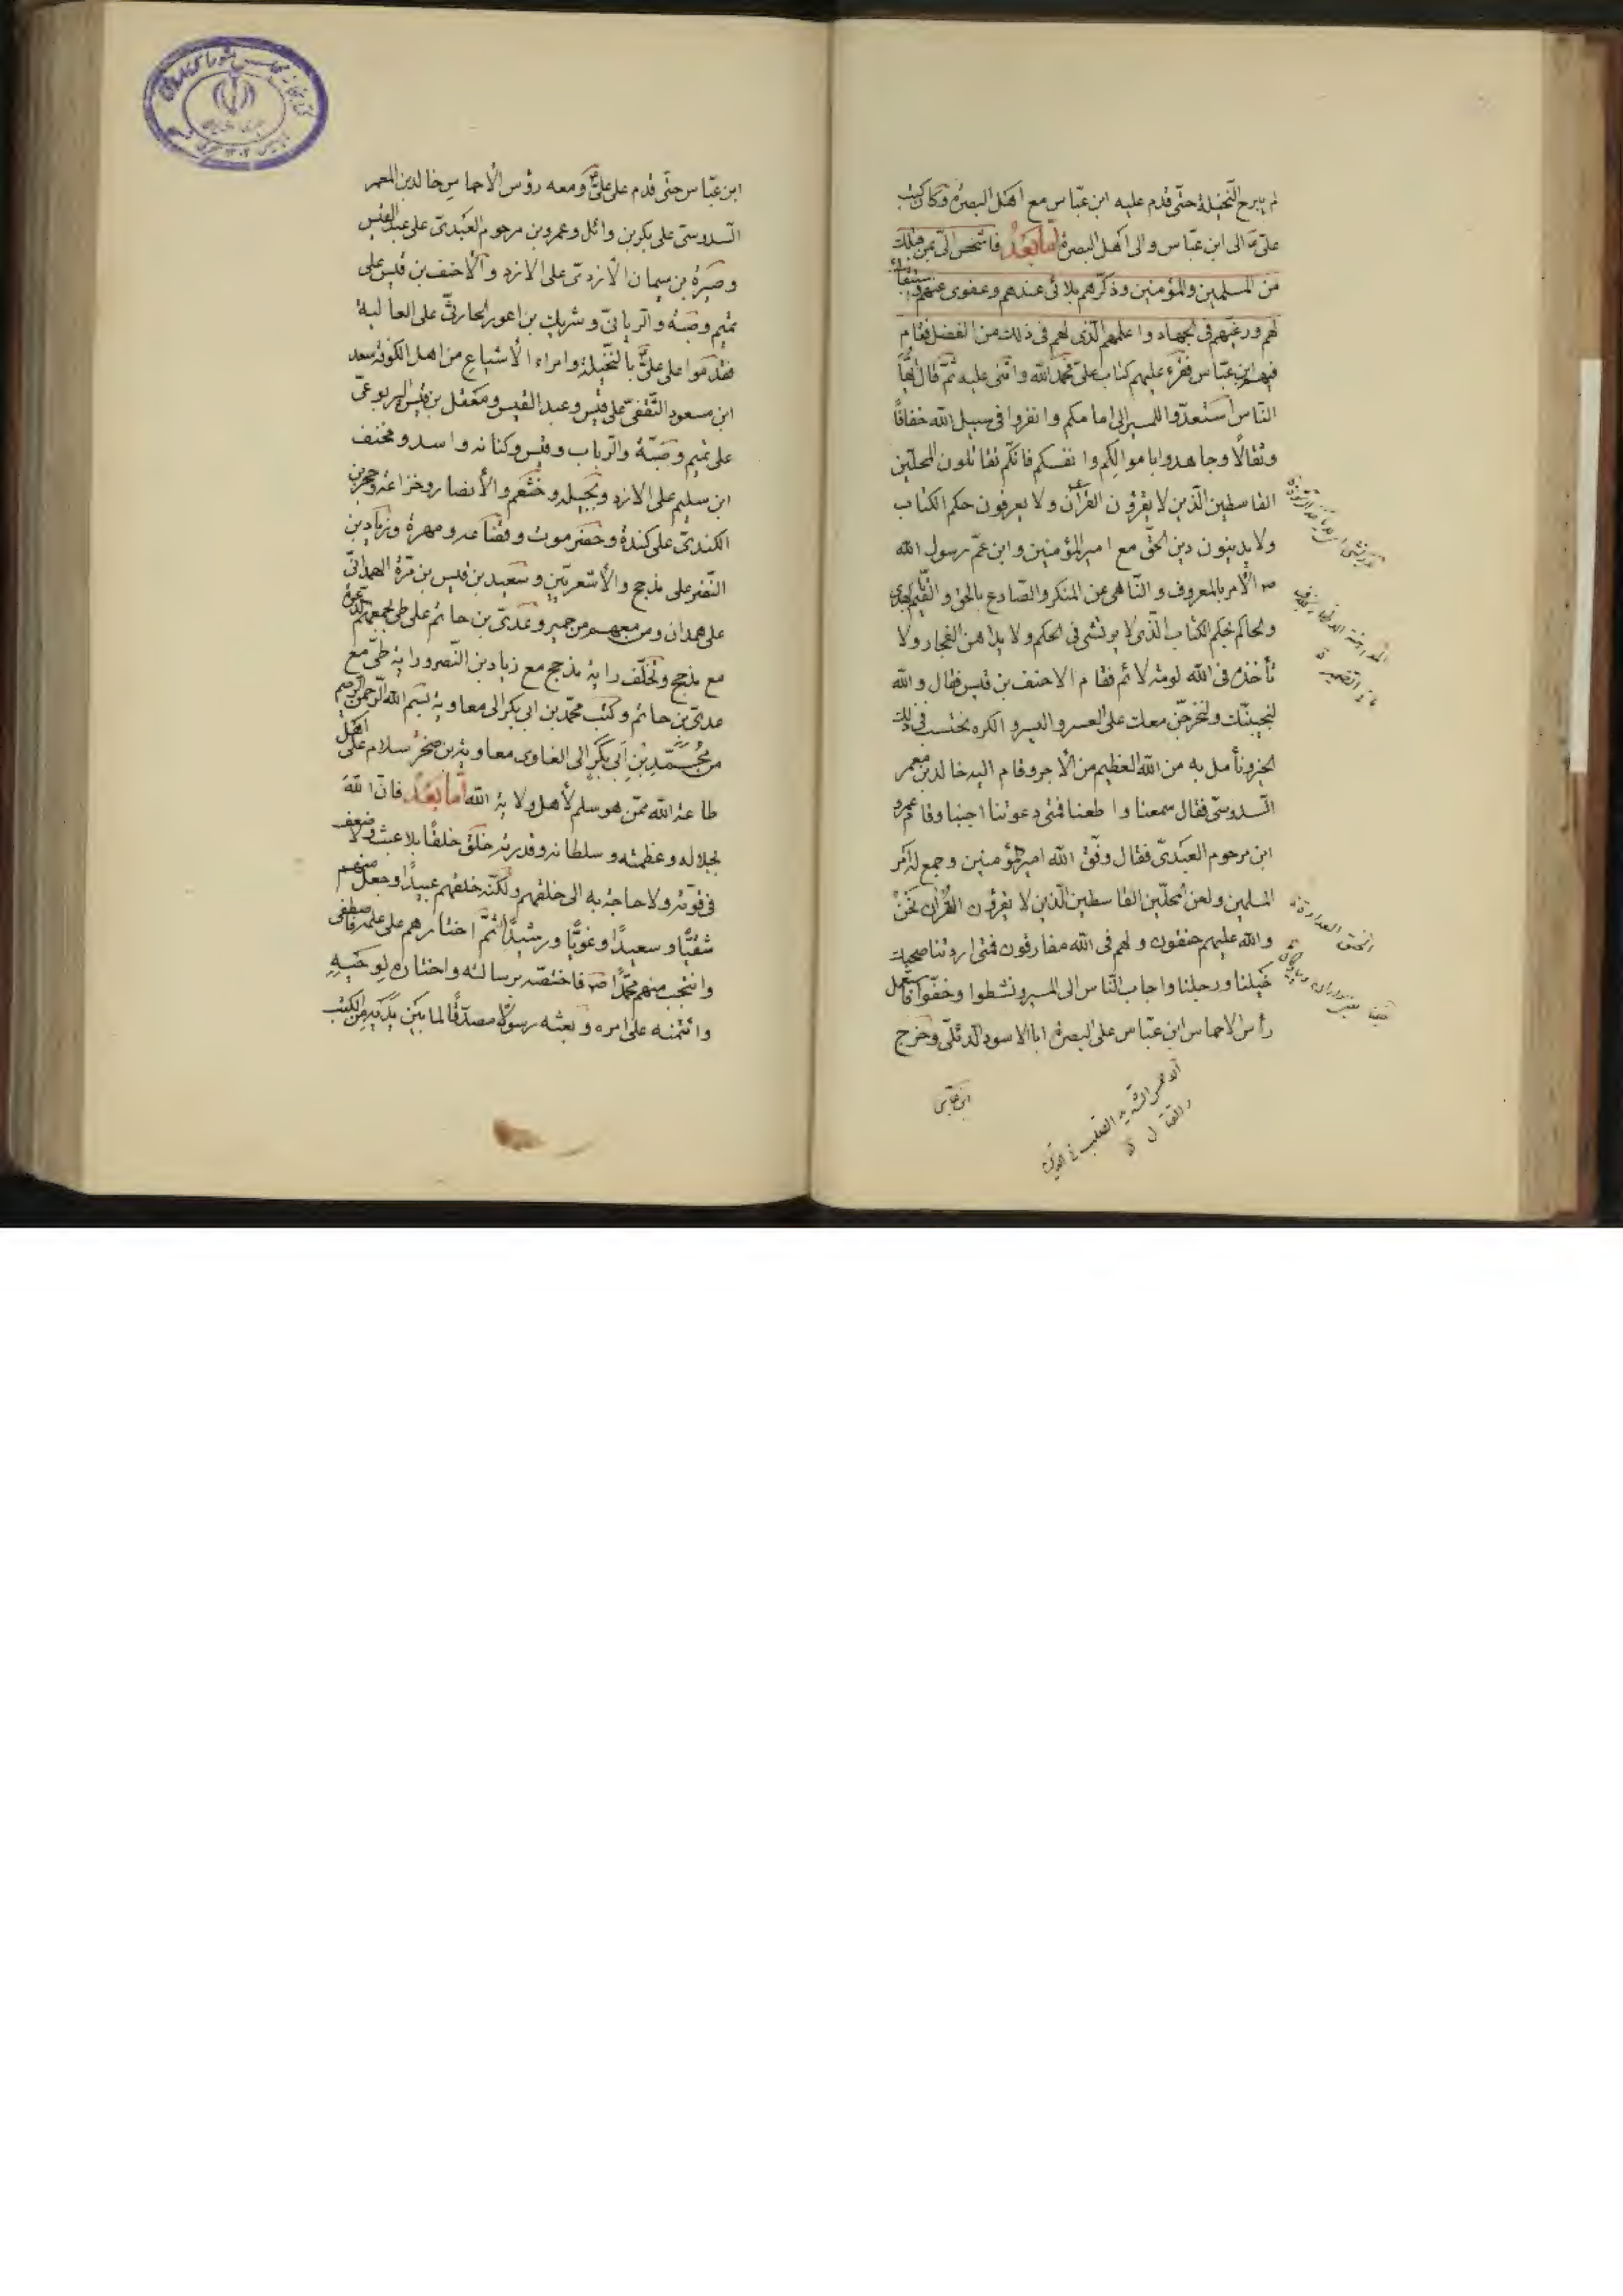 لم يبرح النّخيلة حتّى قدم عليه ابن عبّاس مع اهل البصرة وكان كتب
علىّ الى ابن عبّاس والى اهل البصرة امّا بعد فاشخص الىّ بمن قبلك
من المسلمين والمؤمنين وذكّرهم بلائى عندهم وعفوى عنهم
لهم ورغّبهم فى الجهاد واعلمهم الّذى لهم فى ذلك من الفضل فقام
فيهم ابن عبّاس فقرء عليهم كتاب علىّ فحمد الله واثنى عليه ثمّ قال ايّها
النّاس استعدّوا للمسير الى امامكم وانفروا فى سبيل الله خفافًا
وثقالًا وجاهدوا باموالكم وانفسكم فانّكم تقاتلون المحلّين
القاسطين الّذين لا يقرؤن القرآن ولا يعرفون حكم الكتاب
ولا يدينون دين الحقّ مع امير المؤمنين وابن عمّ رسول الله
ص الأمر بالمعروف والنّاهى عن المنكر والصّادع بالحقّ والقيّم بالهدى
والحاكم بحكم الكتاب الّذى لا يرتشى فى الحكم ولا يداهن الفجار ولا
تأخذه فى الله لومة لائم فقام الاحنف بن قيس فقال والله
لنجيبنّك ولنخرجنّ معك على العسر واليسر والكره نحتسب فى ذلك
الخير ونأمل به من الله العظيم من الأجر وقام اليه خالد بن معمر
السّدوسىّ فقال سمعنا واطعنا فمتى دعوتنا اجبنا وقام عمرو
ابن مرحوم العبدىّ فقال وفّق الله امير المؤمنين وجمع له امر
المسلمين ولعن المحلّين القاسطين الّذين لا يقرؤن القرآن نحن
والله عليهم حنقون ولهم فى الله مفارقون فمتى اردتنا صحبك
خيلنا ورجلنا واجاب النّاس الى المسير ونشطوا وخفّوا فاستعمل
رأس الاحماس ابن عبّاس على البصرة ابا الاسود الدّئلىّ وخرج
ابن عبّاس
ابن عبّاس حتّى قدم على علىّ ومعه رؤس الأحماس خالد بن المعمر
السّدوسىّ على بكر بن وائل وعمرو بن مرجوم العبدىّ على عبد القيس
وصبرة بن سيمان الأزدىّ على الازد والأحنف بن قيس على
تميم وضبّة والرّباب وشريك بن اعور الحارثىّ على العالية
فقدموا على علىّ بالنّخيلة وامراء الأسباع من اهل الكوفة سعد
ابن مسعود الثّقفىّ على قيس وعبد القيس ومعقل بن قيس اليربوعىّ
على تميم وضبّة والرّباب وقيس وكنانه واسد ومخنف
ابن سليم على الازد وبجيله وخثعم والأنصار وخزاعه وحجر بن
الكندىّ على كندة وحضرموت وقضاعه ومهرة وزياد بن
النّضر على مذحج والأشعريّين وسعيد بن قيس بن مرّة الهمدانىّ
على همدان ومن معهم من حمير وعدىّ بن حاتم على طى
مع مذحج وتخلّف راية مذحج مع زياد بن النّصر وراية طىّ مع
عدىّ بن حاتم وكتب محمّد بن ابى بكر الى معاوية بسم الله الرّحمن الرّحيم
من محمّد بن أبى بكر الى الغاوى معاوية بن صخر سلام على اهل
طاعة الله ممّن هو سلم لأهل ولاية الله امّا بعد فانّ الله
بجلاله وعظمته وسلطانه وقدرته خلق خلقًا بلا عبث ولا ضعف
فى قوّته ولا حاجة به الى خلقهم ولكنّه خلقهم عبيدًا وجعل منهم
شقيًّا وسعيدًا وغويًّا ورشيدًا ثمّ اختارهم على علمه فاصطفى
وانتجب منهم محمّدًا ص فاختصّه برسالته واختاره لوحيه
وائتمنه على امره وبعثه رسولا مصدّقًا لما بين يديه من الكتب